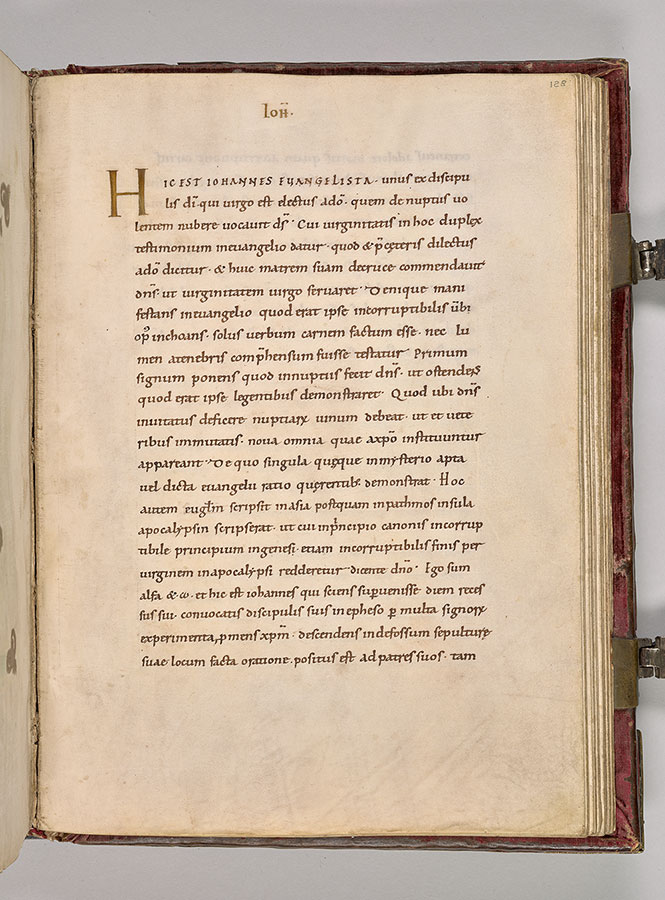 188
Ioħ.
HIC EST IOHANNES EUANGELISTA · unus ex discipu
lis dī · qui virgo est electus adō · quem de nuptiis vo
lentem nubere vocavit ds̄ · Cui virginitatis in hoc duplex
testimonium in euangelio datur · quod & p̄ ceteris dilectus
adō dicitur · & huic matrem suam de cruce commendavit
dn̄s · ut virginitatem virgo servaret · Denique mani
festans in euangelio quod erat ipse incorruptibilis ūbi
op̄ inchoans · solus verbum carnem factum esse · nec lu
men a tenebris comp̄hensum fuisse testatur · Primum
signum ponens quod in nuptiis fecit dn̄s · ut ostendens
quod erat ipse legentibus demonstraret · Quod ubi dn̄s
invitatus deficere nuptiarꝝ vinum debeat · ut et vete
ribus immutatis · nova omnia quae a xp̄o instituuntur
appareant · De quo singula quęque in mysterio apta
vel dicta euangelii ratio querentib; demonstrat · Hoc
autem eugl̄m scripsit in asia postquam in pathmos insula
apocalypsin scripserat · ut cui in p̄ncipio canonis incorrup
tibile principium in genesi · etiam incorruptibilis finis per
virginem in apocalypsi redderetur dicente dn̄o · Ego sum
alfa & ω · et hic est iohannes qui sciens sup̄venisse diem reces
sus sui · convocatis discipulis suis in epheso ꝑ multa signorꝝ
experimenta, ꝓmens xp̄m · descendens in defossum sepulturę
suae locum facta oratione · positus est ad patres suos · tam